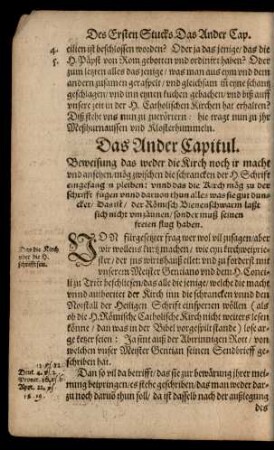 Des Ersten Stucks Das Ander Cap.
4. cilien ist beschlossen worden? Oder ja das jenige / das die
5. H. Päpst von Rom gebotten vnd ordinirt haben? Oder
zum letzten alles das jenige / was man aus eym vnd dem
andern zusamen geraspelt / vnd gleichsam in eyne schantz
geschlagen / vnd inn eynen huchen gebachen / vnd biß auff
vnsere zeit in der H. Catholischen Kirchen hat erhalten?
Diß steht vns nun zu zuerörtern: hie tragt nun zu jhr
Meßharnaussen vnd Klosterhummeln.
Das Ander Capitul.
Beweisung das weder die Kirch noch ir macht
vnd ansehen / mög zwischen die schrancken der H. Schrifft
eingefang n pleiben: vnnd das die Kirch mög zu der
schrifft fugen vnnd daruon thun alles was sie gut dun-
cket. Das ist / der Römisch Bienenschwarm laßt
sich nicht vmzäunen / sonder muß seinen
freien flug haben.
Von fürgesetzer frag wer vol vil zusagen / aber
wir wollens kurtz machen / wie eyn
der / zur ins wirtshauß eilet: vnd zu forderst mit
vnserem Meister Gentiano vnd dem H. Conci-
lij zu Trit beschliesen / das alle die jenige / welche die macht
vnnd authoritet der Kirch inn die schrancken vnnd den
Notstall der Heiligen Schrift einsperren wöllen (als
ob die H. Römische Catholische Kirch nicht weiters lesen
könne / dan was in der Bibel vorgespilt stande) lose ar-
ge ketzer seien: Ja sint auß der Abrinnigen Rott / von
welchen vnser Meister Gentian seinen Sendbrieff ge-
schriben hat.
Dan so vil da betrifft / das sie zur bewärung jhrer mei-
nung beipringen / es stehe geschriben / das man weder dar-
zu noch daruö thun soll / da ist dasselb nach der außlegung
des
Das die Kirch
vber die H.
schrifft sei.
Deut. 4.
Prouer.
Apoc. 22.
18. 19.